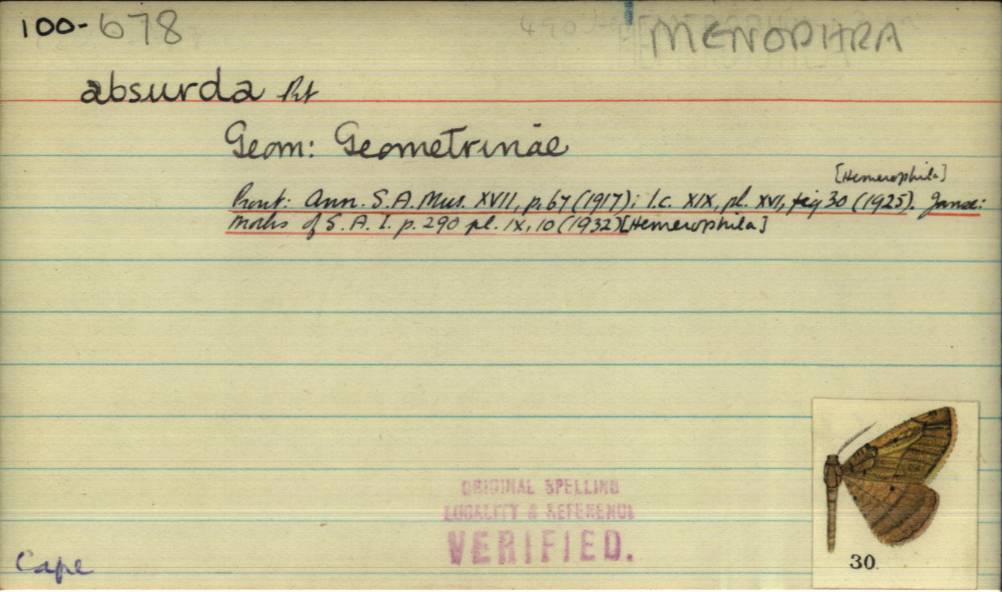 100-678 MENOPHRA
absurda Prt
Geom: Geometrinae
[Hemerophila]
Prout: Ann. S.A. Mus. XVII, p.67 (1917); l.c. XIX, pl. XVI, fig 30 (1925). Janse:
Moths of S.A. I. p.290 pl. IX, 10 (1932) [Hemerophila]
ORIGINAL SPELLING
LOCALITY & REFERENCE
VERIFIED.
Cape
30.